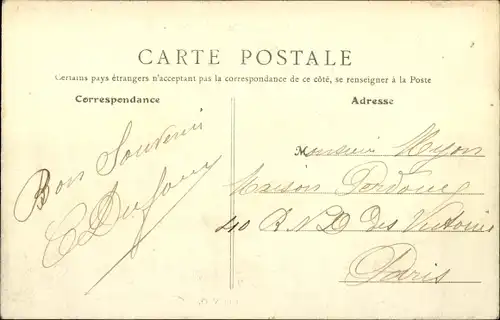 CARTE POSTALE
Certains pays étrangers n'acceptant pas la correspondance de ce côté, se renseigner à la Poste
Correspondance
Adresse
Bon Souvenir
E Dufour
Monsieur Myon
Maison
40 R N D des Victoires
Paris